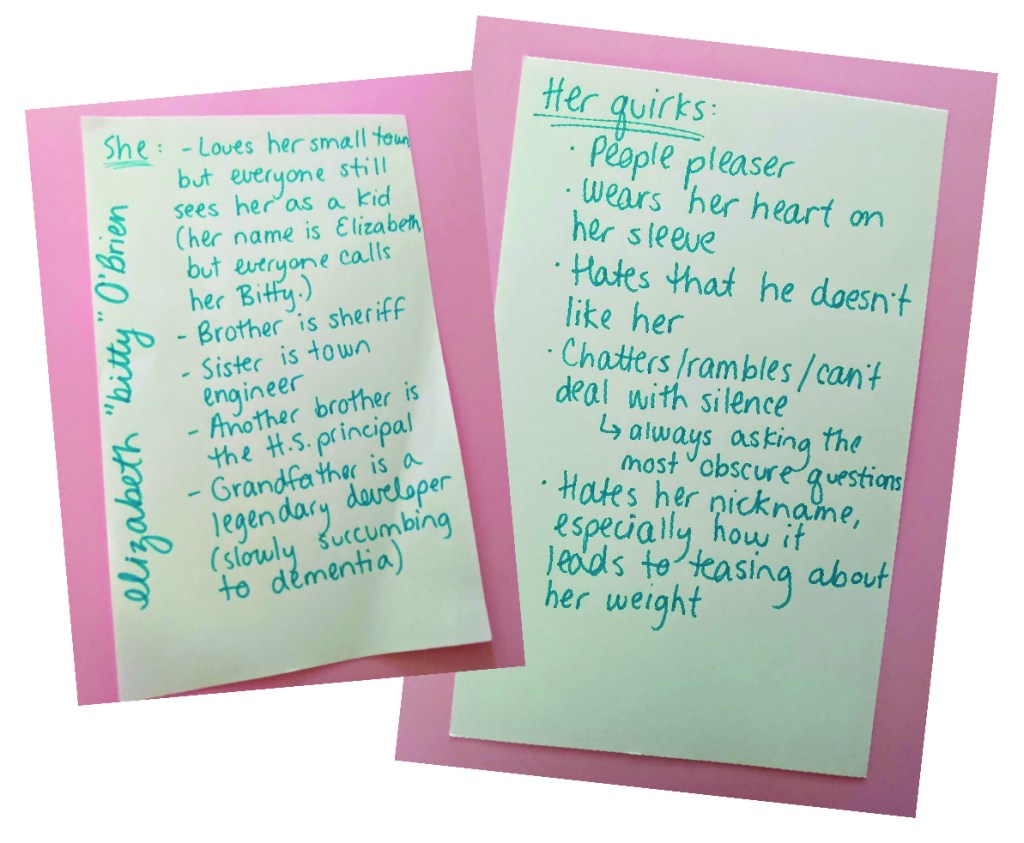 elizabeth "bitty" O'Brien
She: - Loves her small town
but everyone still
sees her as a kid
(her name is Elizabeth
but everyone calls
her Bitty.)
- Brother is sheriff
- Sister is town
engineer
- Another brother is
the H.S. principal
- Grandfather is a
legendary developer
(slowly succumbing
to dementia)
Her quirks:
· People pleaser
· Wears her heart on
her sleeve
· Hates that he doesn't
like her
· Chatters/rambles/can't
deal with silence
↳ always asking the
most obscure questions
· Hates her nickname,
especially how it
leads to teasing about
her weight